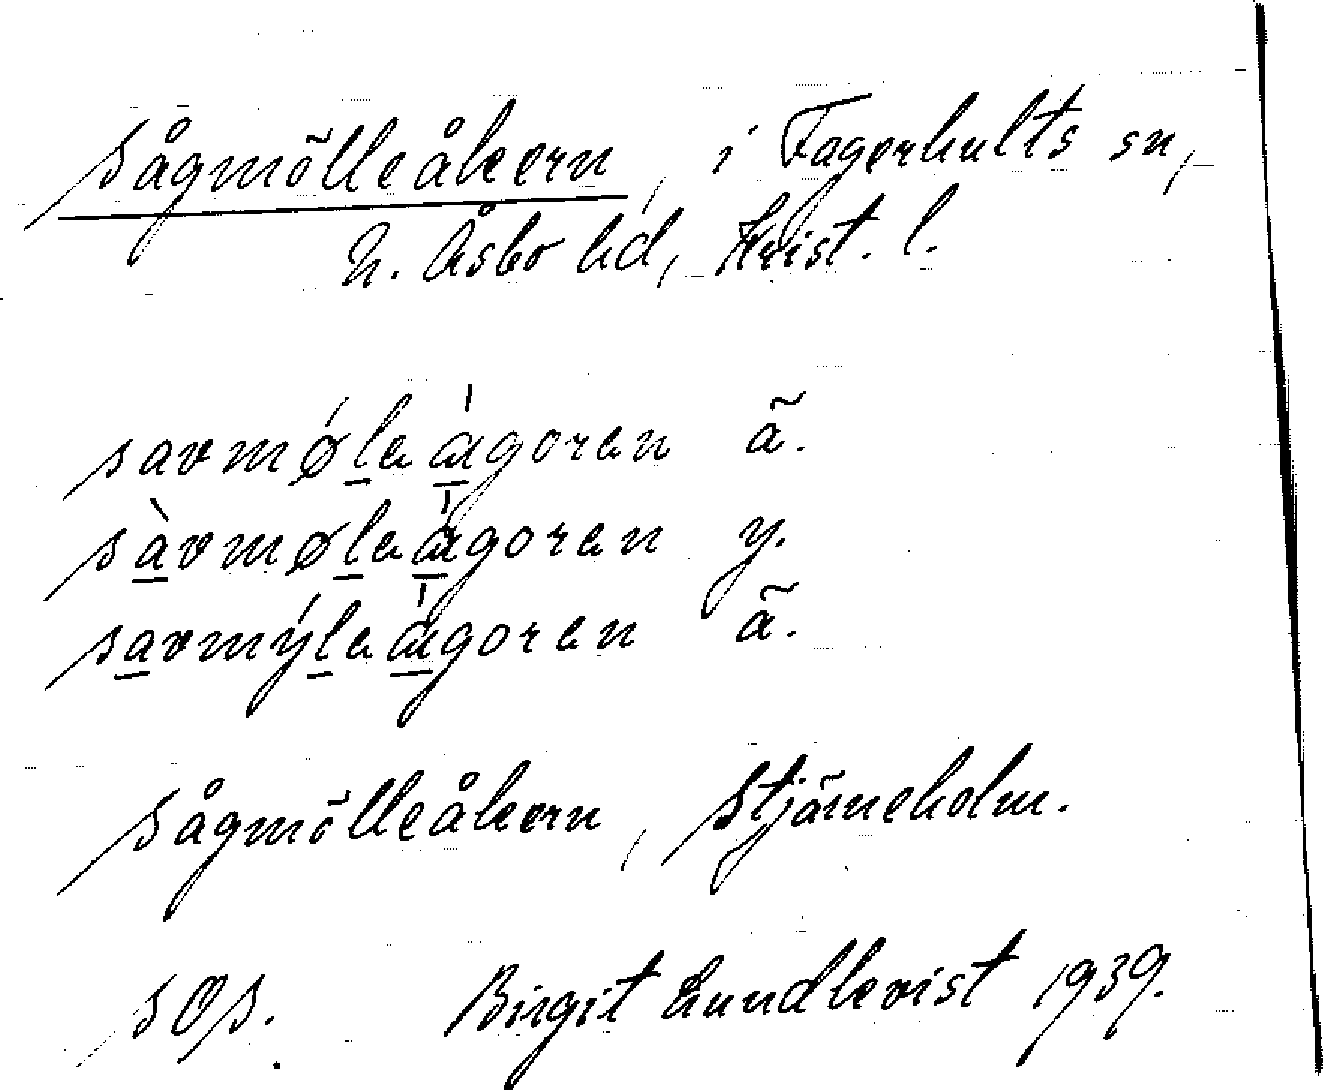 Sågmölleåkern, i Fagerhults sn,
N. Åsbo hd, Krist. l.
savmǿla àgoran ã.
sàvmøla àgoran y.
savmýla àgoran ã.
Sågmölleåkern, Stjärneholm.
SOS. Birgit Lundkvist 1939.